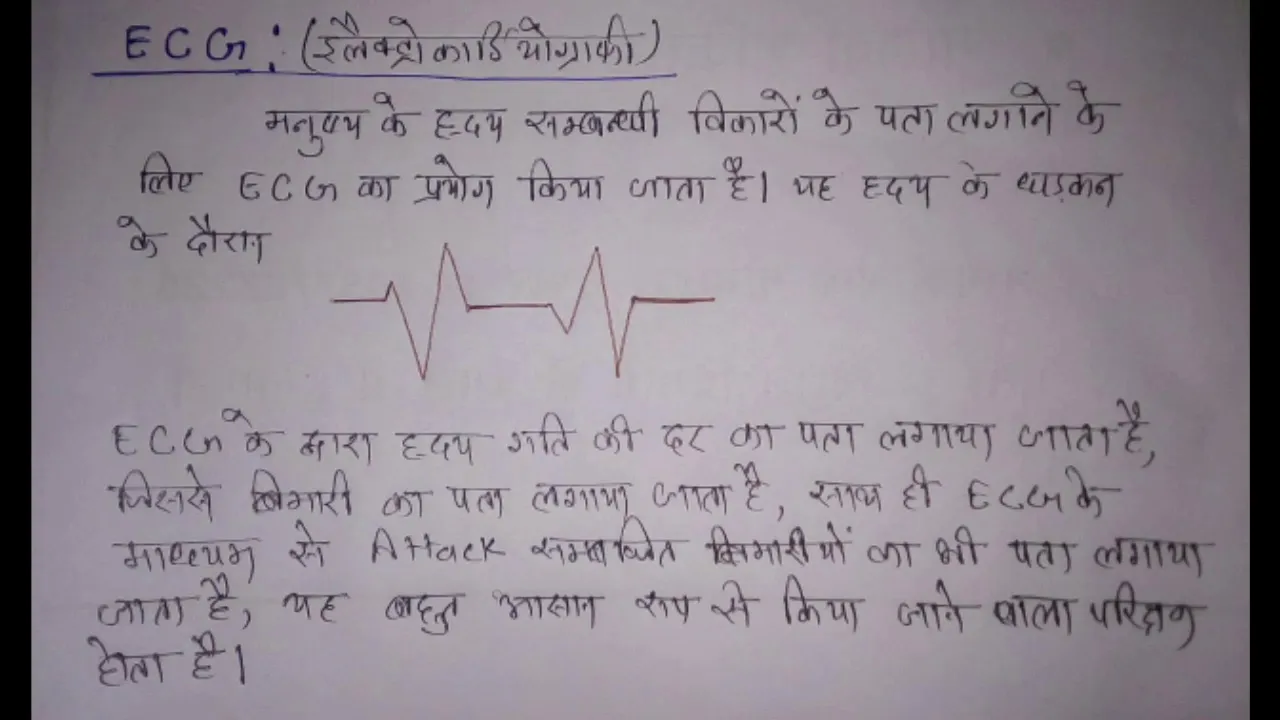 ECG : (इलैक्ट्रो कार्डियोग्राफी)
मनुष्य के हृदय सम्बन्धी विकारों के पता लगाने के
लिए ECG का प्रयोग किया जाता है। यह हृदय के धड़कन
के दौरान
ECG के द्वारा हृदय गति की दर का पता लगाया जाता है,
जिससे बिमारी का पता लगाया जाता है, साथ ही ECG के
माध्यम से Attack सम्बन्धित बिमारीयों का भी पता लगाया
जाता है, यह बहुत आसान रूप से किया जाने वाला परिक्षण
होता है।